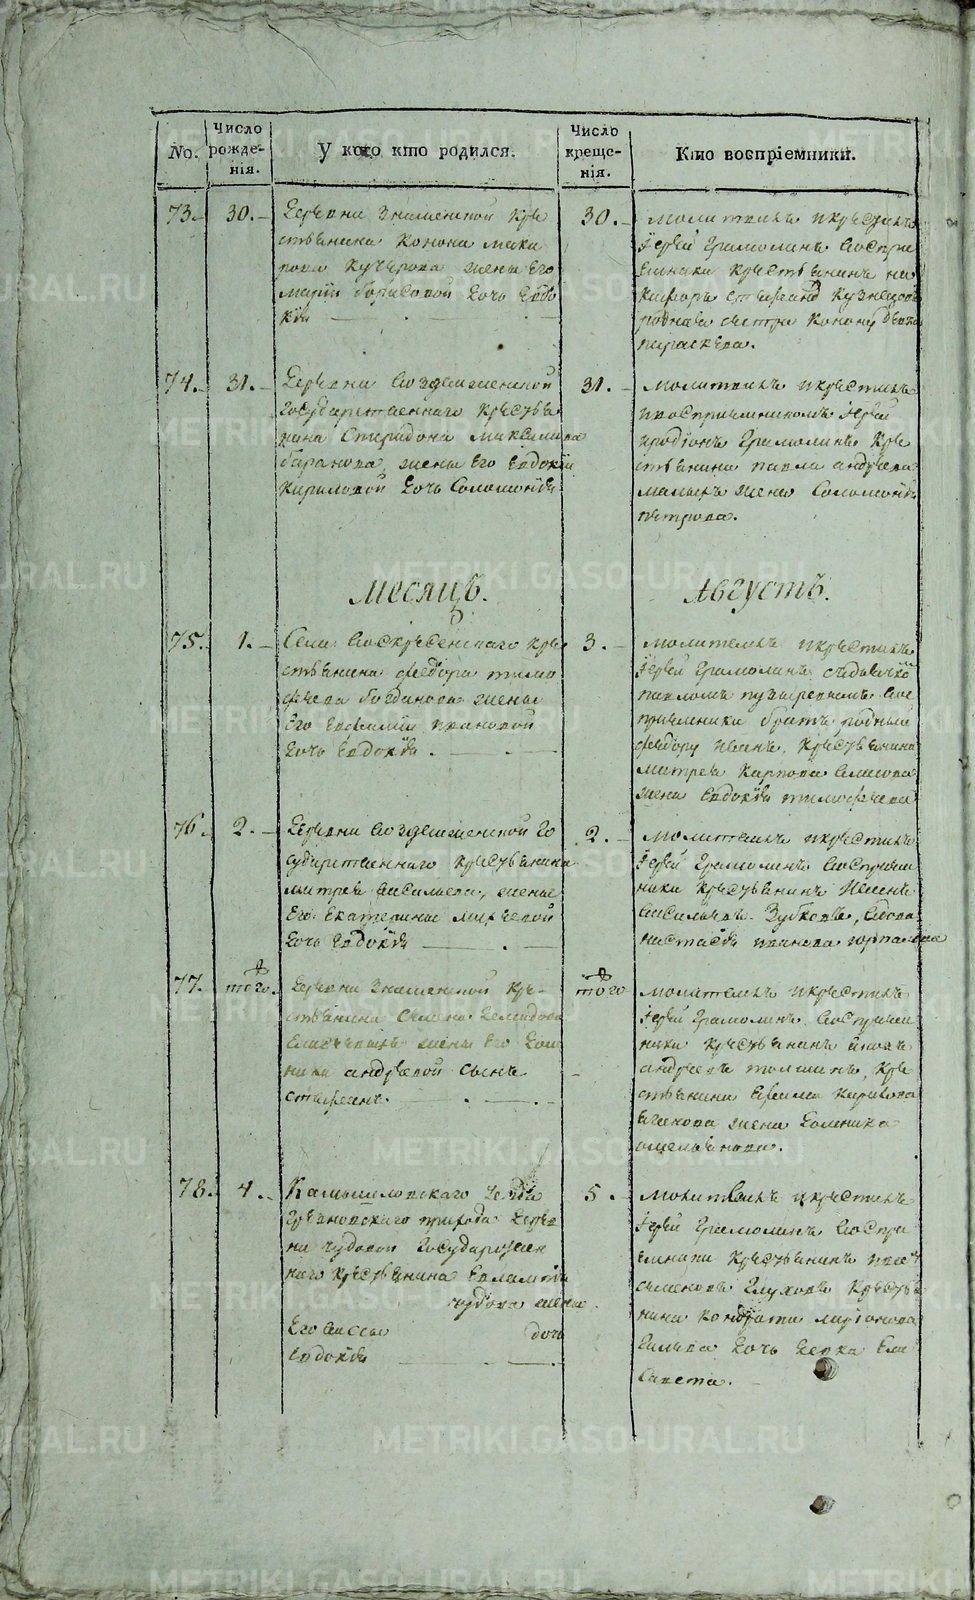 No.
Число рожде-нія.
У кого кто родился.
Число креще-нія.
Кто воспріемники.
73.
30.
Деревни Знаменской кре
стьянина Конона Мака
рова Кучерова жены его
Маріи Борисовой дочь Евдо
кія
30.
молитвилъ и крестилъ
Іерей Грамолинъ воспри
емники крестьянинъ Ни
кифоръ Стефановъ Кузнецовъ
родная сестра Конону девка
Параскева.
74.
31.
Деревни Воздвиженской
государственнаго крестья
нина Спиридона Максимова
Баранова жены его Евдокіи
Кириловой дочь Соломонія
31.
молитвилъ и крестилъ
и воспріемникомъ Іерей
Иродіонъ Грамолинъ кре
стьянина Павла Андреева
Малыхъ жена Соломонія
Петрова.
Месяцъ.
Августъ.
75.
1.
Села Воскресенскаго кре
стьянина Федора Тимо
феева Богданова жены
его Евфиміи Ивановой
дочь Евдокія.
3.
молитвилъ и крестилъ
Іерей Грамолинъ съ дьячкомъ
Павломъ Пузыревымъ вос
приемники братъ родный
Федору Иванъ, крестьянина
Митрея Карпова
жена Евдокія Тимофеева
76.
2.
Деревни Воздвиженской го
сударственнаго крестьянина
Митрея Васильева, жены
его Екатерины Михеевой
дочь Евдокія
2.
молитвилъ и крестилъ
Іерей Грамолинъ восприем
ники крестьянинъ Иванъ
Васильевъ Зубковъ, вдова
Настасія Иванова
77.
того.
Деревни Знаменской кре-
стьянина Семена Демидова
жены его Дом
ники Андреевой сынъ
Стефанъ.
того
молитвилъ и крестилъ
Іерей Грамолинъ восприем
ники крестьянинъ Яковъ
Андреевъ Толшинъ, кре
стьянина Ефима Кирилова
жена Домника
Омельянова.
78.
4.
Камышловскаго уезда
прихода дерев
ни Чудовой государствен
наго крестьянина Евлампія
Чудова жены
его Вассы дочь
Евдокія
5.
молитвилъ и крестилъ
Іерей Грамолинъ воспри
емники крестьянинъ
Семеновъ Глуховъ крестья
нина Кондратія Ларіонова
дочь девка Ели
савета.
METRIKI.GASO-URAL.RU